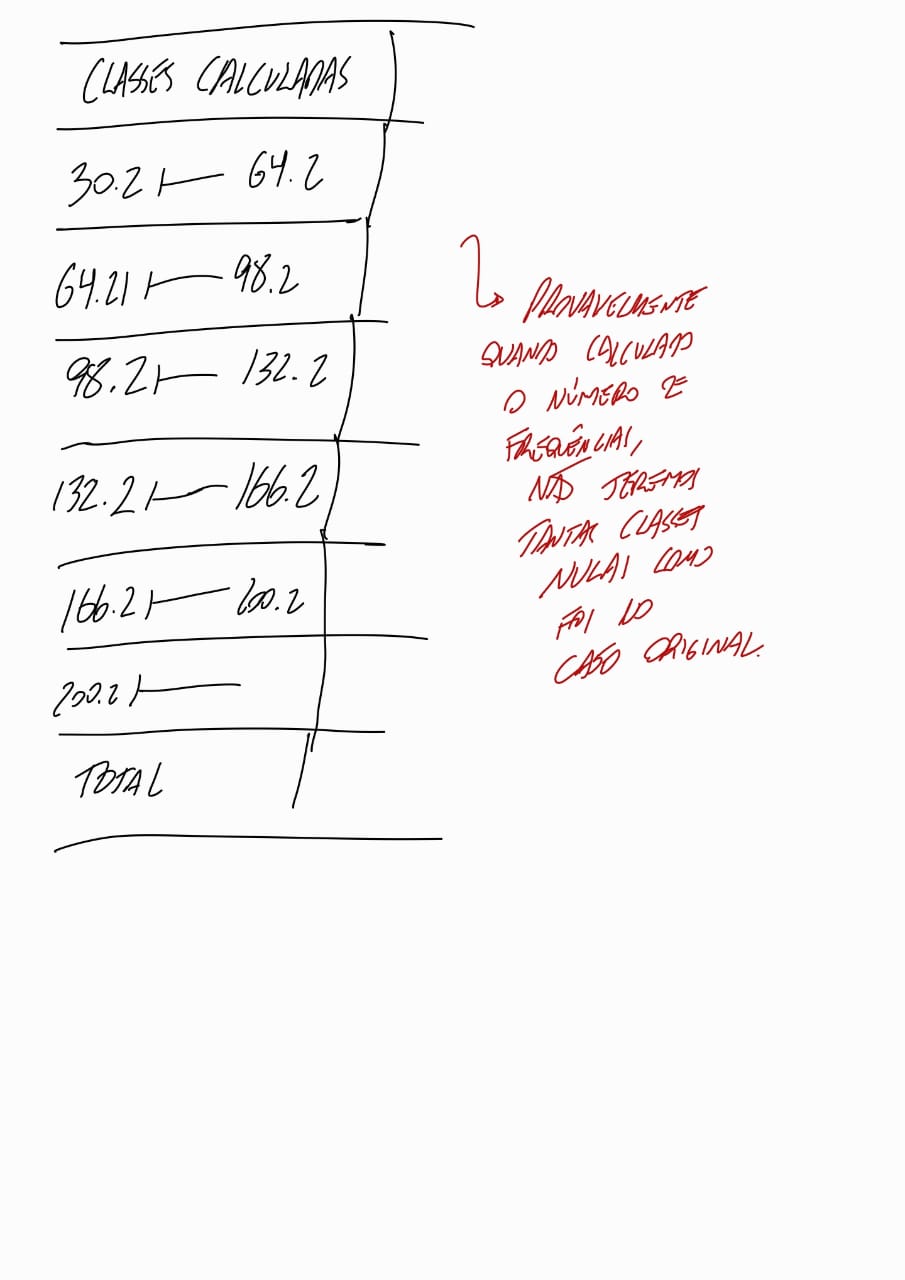 CLASSES CALCULADAS
30.2 |— 64.2
64.21 |— 98.2
98.2 |— 132.2
132.2 |— 166.2
166.2 |— 200.2
200.2 |—
TOTAL
PROVAVELMENTE
QUANDO CALCULADO
O NÚMERO DE
FREQUÊNCIAS,
NÃO TEREMOS
TANTAS CLASSES
NULAS COMO
FOI NO
CASO ORIGINAL.